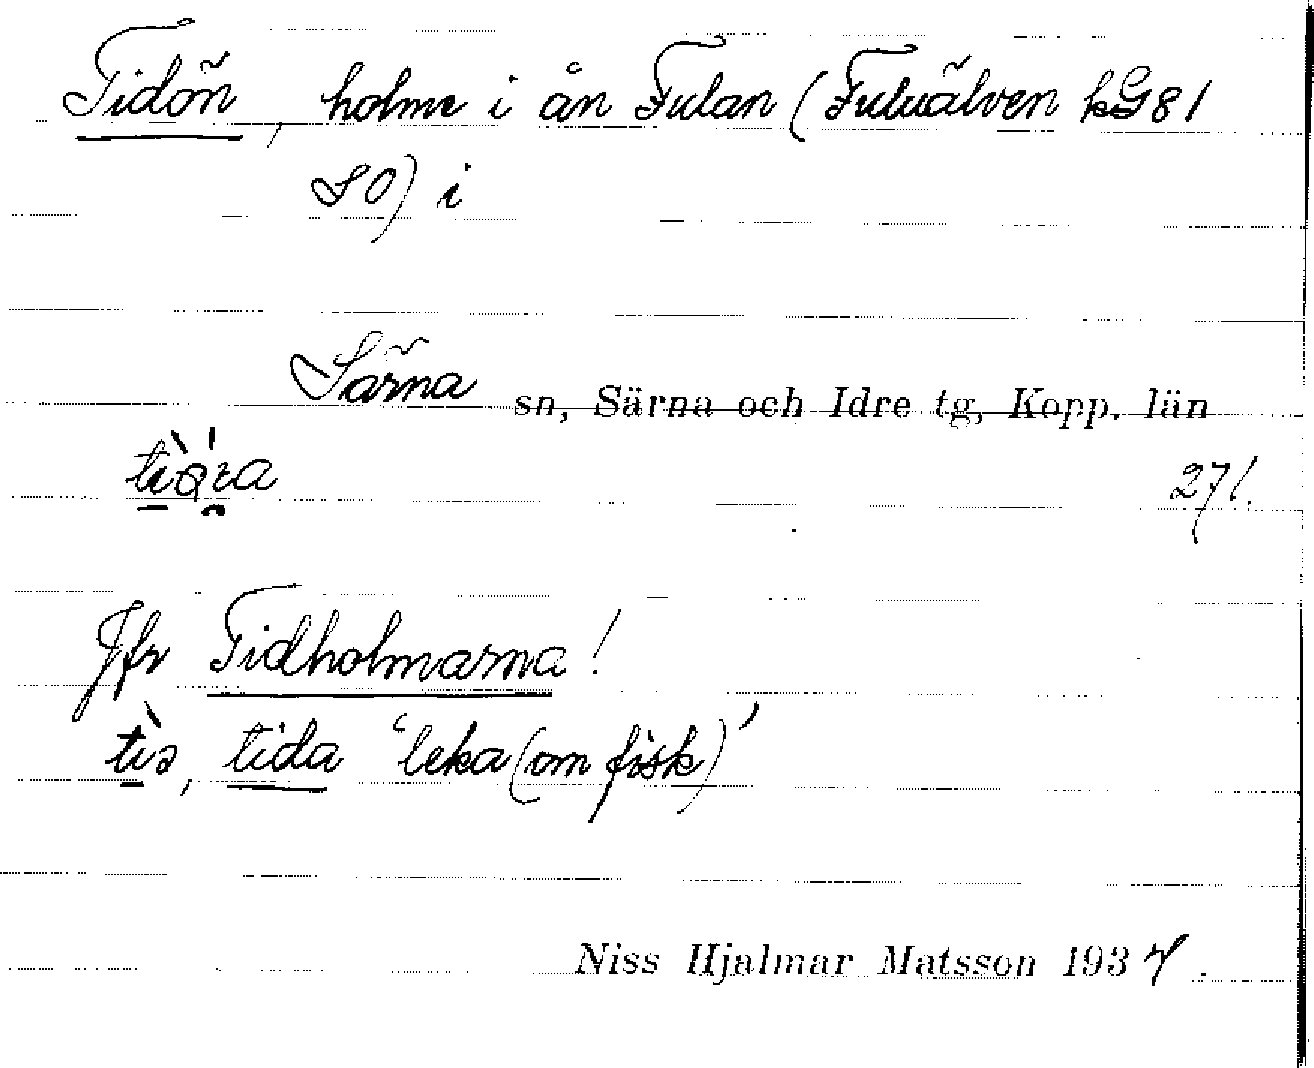 Tidön, holme i ån Fulan (Fuluälven kG81
SO) i
Särna sn, Särna och Idre tg, Kopp. län
271.
Jfr Tidholmarna!
tida 'leka (om fisk)'
Niss Hjalmar Matsson 1937.